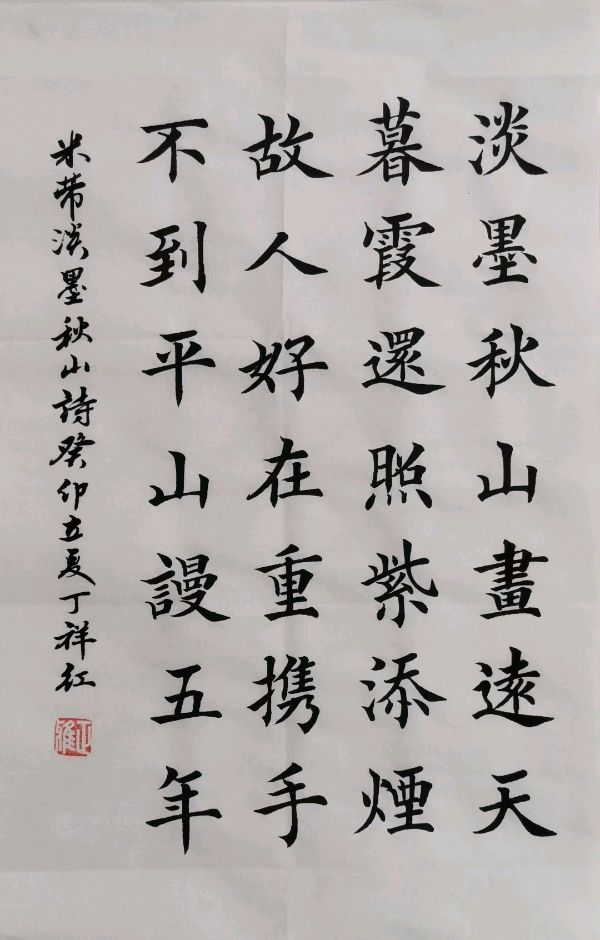 淡墨秋山畫遠天
暮霞還照紫添煙
故人好在重携手
不到平山謾五年
米芾淡墨秋山詩癸卯立夏丁祥红